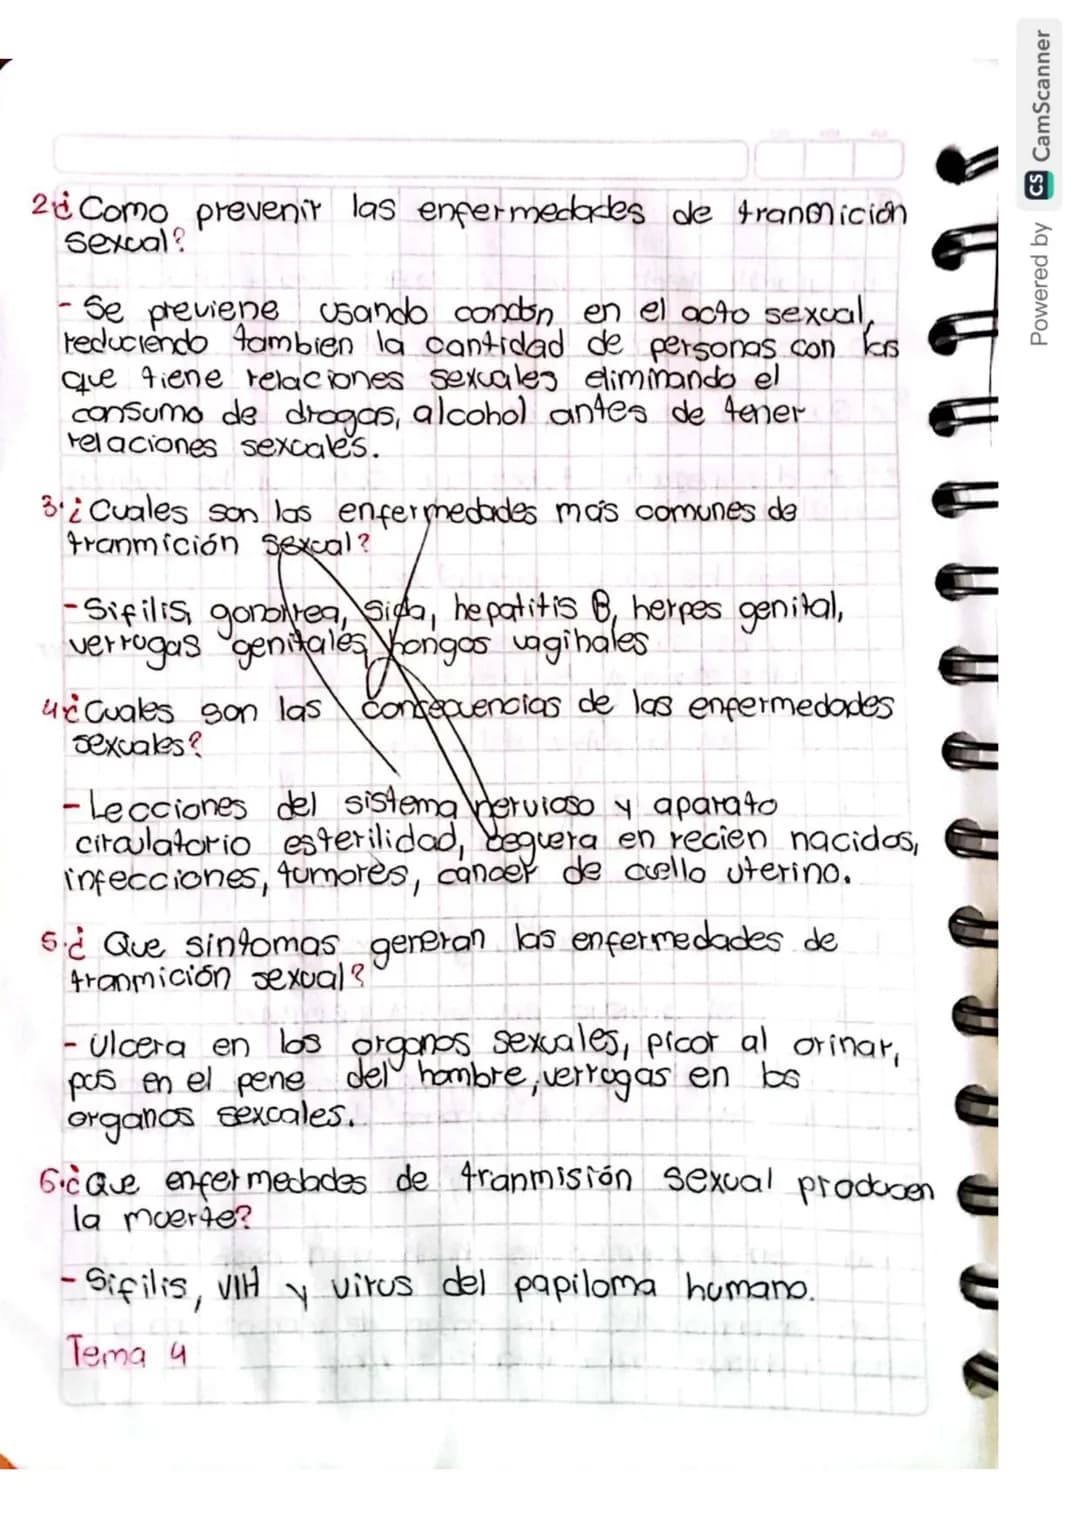 2.¿Como prevenir las enfermedades de tranmición
sexual?
- Se previene usando condón en el acto sexual,
reduciendo tambien la cantidad de personas con las
que tiene relaciones sexuales eliminando el
consumo de drogas, alcohol antes de tener
relaciones sexuales.
3.¿Cuales son las enfermedades más comunes de
tranmición sexual?
-Sifilis, gonorrea, sida, hepatitis B, herpes genital,
verrugas genitales, hongos vaginales
4.¿Cuales son las consequencias de las enfermedades
sexuales?
-Lecciones del sistema nervioso y aparato
circulatorio esterilidad, ceguera en recien nacidos,
infecciones, tumores, cancer de cuello uterino.
5.¿Que sintomas generan las enfermedades de
tranmición sexual?
- Ulcera en los organos sexuales, picor al orinar,
pus en el pene del hombre, verrugas en los
organos sexuales.
6.¿Que enfermedades de tranmisión sexual producen
la muerte?
-Sifilis, VIH y virus del papiloma humano.
Tema 4
Powered by CS CamScanner